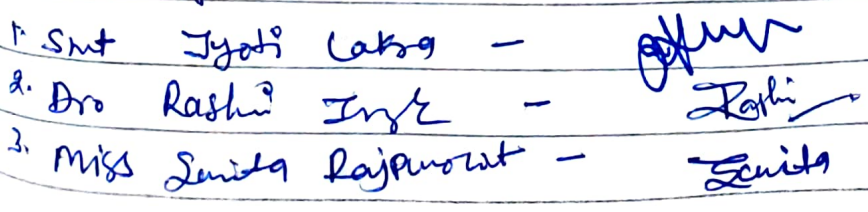 1. Smt Jyoti Lakra -
2. Dro Rashi Ingle - Rashi
3. Miss Sunita Rajpurohit - Sunita